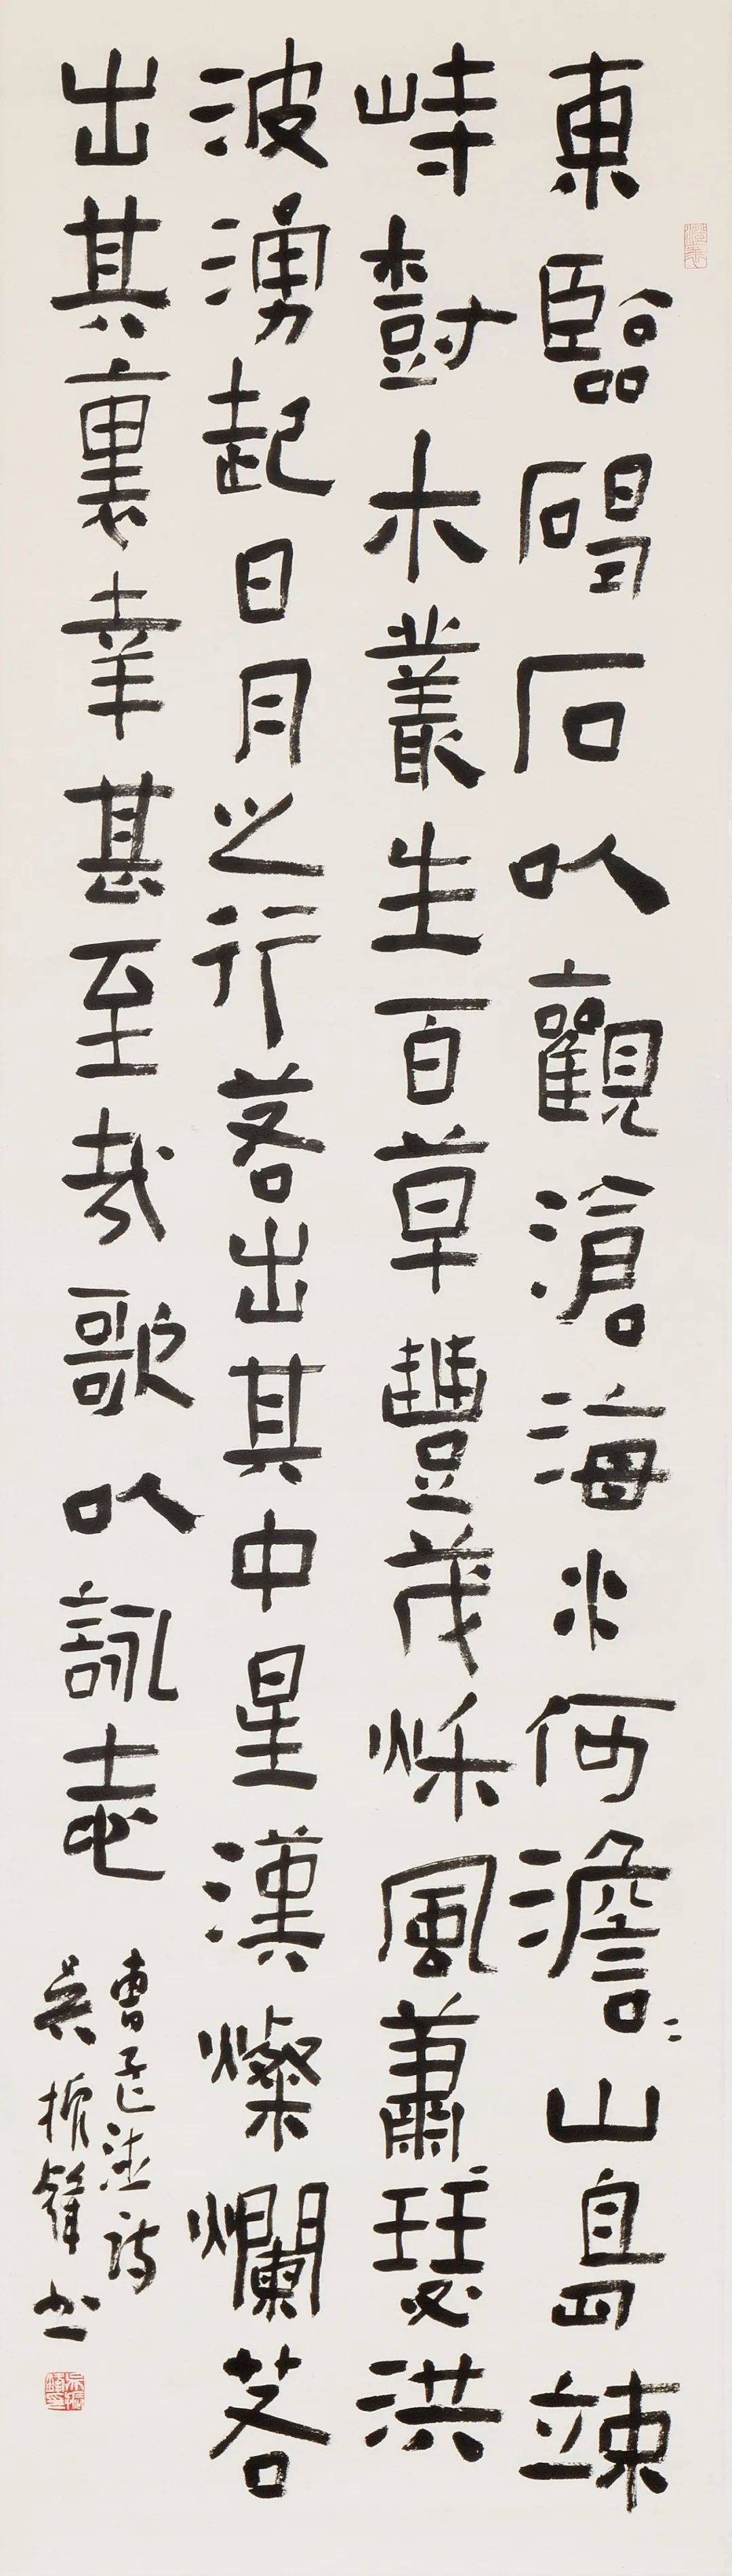 東臨碣石以觀滄海水何澹〻山島竦
峙樹木叢生百草豐茂秌風蕭瑟洪
波湧起日月之行若出其中星漢燦爛若
出其裏幸甚至哉歌以詠志
曹孟德詩
吳振鋒书